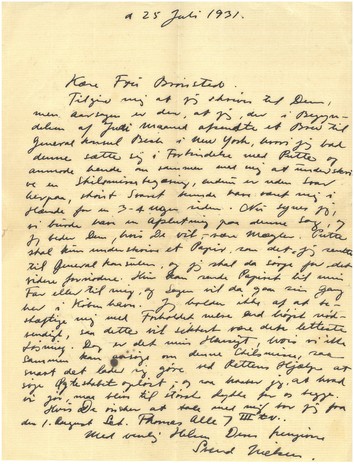 d 25 Juli 1931.
Kære Frú Brønsted.
Tilgiv mig at jeg skriver til Dem,
men aarsagen er den, at jeg, der i Begyn-
delsen af Juli Maaned afsendte et Brev til
General konsul Bech i New York, hvori jeg bad
denne sætte sig i Forbindelse med Putte og
anmode hende om sammen med mig at underskri-
ve en Skilsmissebegæring, endnu er uden Svar
herpaa, skønt Svaret kunde have været mig i
Hænde for en 3-4 Uger siden. Nu synes jeg,
vi burde have en Afslutning paa denne Sag, og
jeg beder Dem, hvis De vil være Mægler. Putte
skal kun underskrive et Papir, saa det, jeg sendte
til General konsulen, og jeg skal da sørge for det
videre fornødne. Hun kan sende Papiret til min
Far eller til mig, og Sagen vil da gaa sin Gang
her i København. Jeg holder ikke af at be-
skæftige mig med Forholdet mere end højst nød-
vendigt, saa dette vil sikkert være den letteste
Løsning. Det er det min Hensigt, hvis vi ikke
sammen kan om denne Skilsmisse, saa
snart det lader sig gøre ved Rettens Hjælp at
søge Ægteskabet opløst, og saa
vi gør, men blive til størst for os begge.
Hvis De ønsker at tale med mig bor jeg fra
den 1. August Sct. Thomas Alle 7 III tv..
Med venlig Hilsen Deres hengivne
Svend Nielsen.